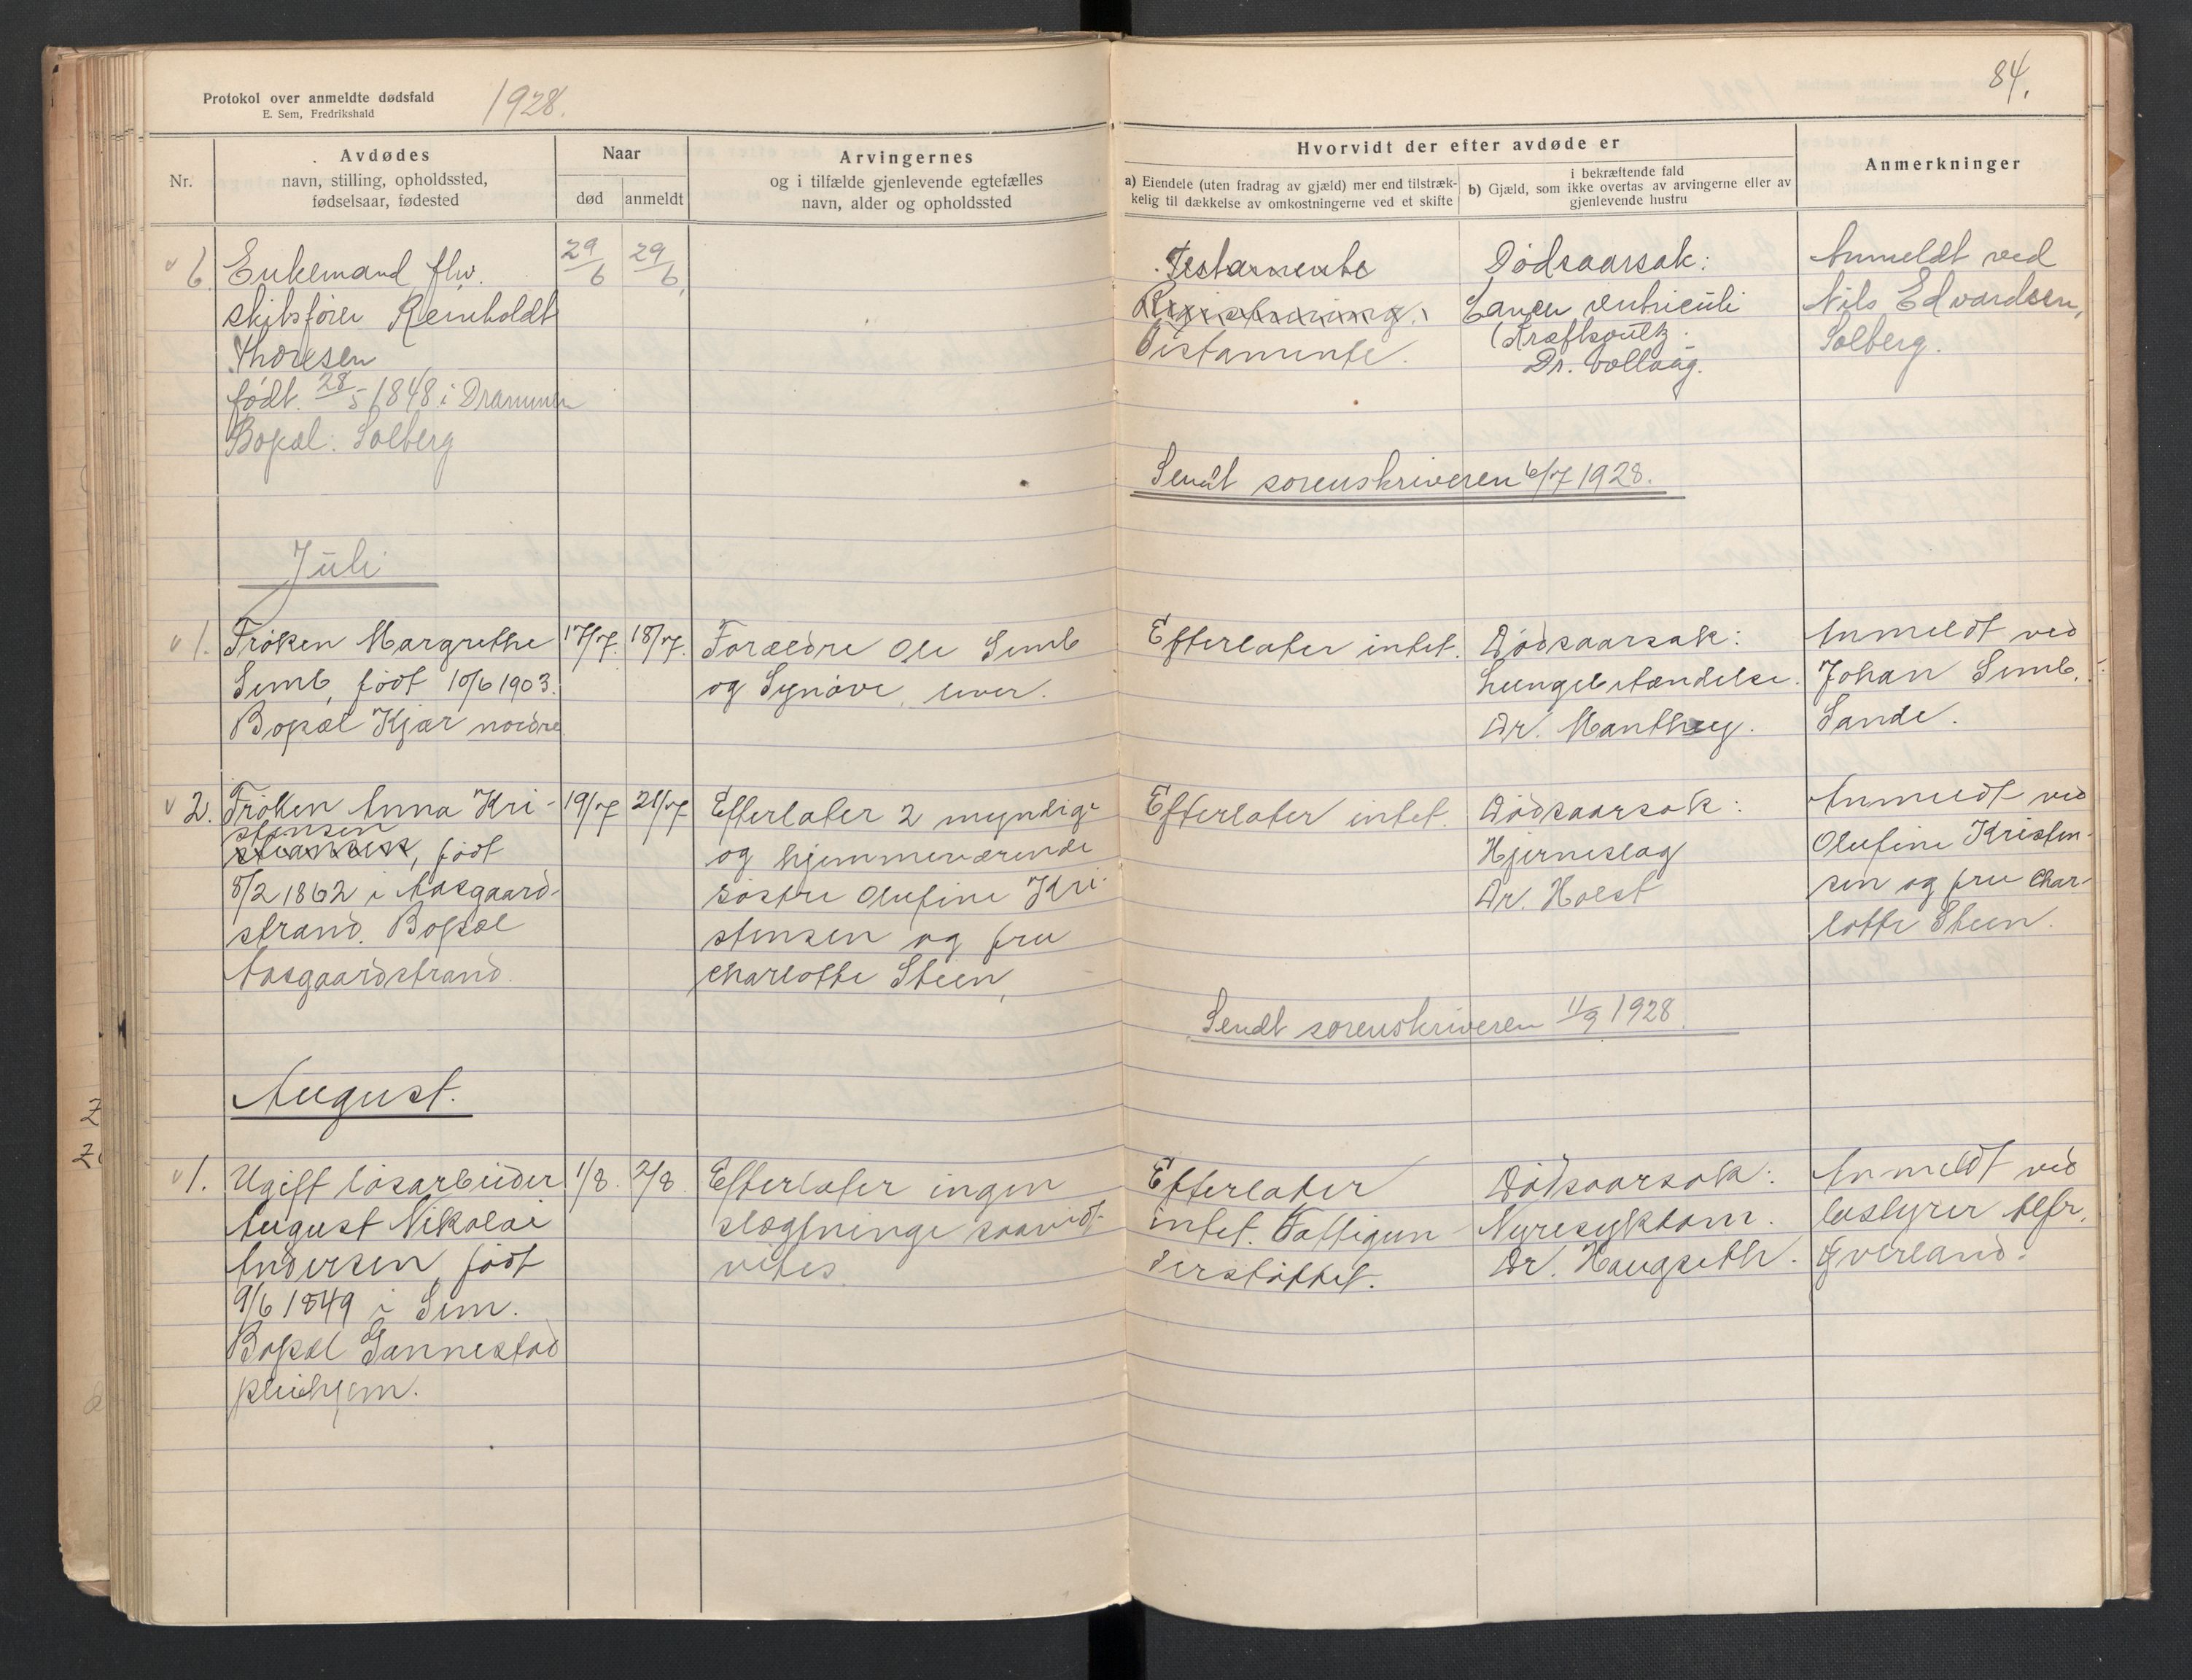 Protokol over anmeldte dødsfald
E. Sem, Fredrikshald
1928.
84.
Nr.
Avdødes
navn, stilling, opholdssted,
fødselsaar, fødested
Naar
død
anmeldt
Arvingernes
og i tilfælde gjenlevende egtefælles
navn, alder og opholdssted
Hvorvidt der efter avdøde er
a) Eiendele (uten fradrag av gjæld) mer end tilstræk-
kelig til dækkelse av omkostningerne ved et skifte
i bekræftende fald
b) Gjæld, som ikke overtas av arvingerne eller av
gjenlevende hustru
Anmerkninger
v 6.
Enkemand, fhv.
skibsfører Reinholdt
Thoresen
født 28/5 1848 i Drammen
Bopæl: Solberg
29/6
29/6.
Testamente
Testamente.
Dødsaarsak:
Cancer ventriculi
(Kræftsvulst)
Dr. Vollaug.
Anmeldt ved
Nils Edvardsen,
Solberg.
Sendt sorenskriveren 6/7 1928.
Juli
v 1.
Frøken Margrethe
Semb, født 10/6 1903.
Bopæl Kjær nordre
17/7.
18/7.
Forældre Ole Semb
og Synøve, lever.
Efterlater intet.
Dødsaarsak:
Lungebetændelse.
Dr. Manthey.
Anmeldt ved
Johan Semb,
Sande.
v 2.
Frøken Anna Kri-
stensen
, født
8/2 1862 i Aasgaard-
strand. Bopæl
Aasgaardstrand.
19/7
21/7
Efterlater 2 myndige
og hjemmeværende
søstre Olufine Kri-
stensen og fru
Charlotte Steen,
Efterlater intet.
Dødsaarsak:
Hjerneslag
Dr. Holst
Anmeldt ved
Olufine Kristen-
sen og fru Char-
lotte Steen.
Sendt sorenskriveren 11/9 1928.
August.
v 1.
Ugift løsarbeider
August Nikolai
Andersen, født
9/6 1849 i Sem.
Bopæl Gannestad
pleihjem.
1/8.
2/8.
Efterlater ingen
slægtninge saavidt
vites.
Efterlater
intet. Fattigun
derstøttet.
Dødsaarsak:
Nyresykdom.
Dr. Haugseth.
Anmeldt ved
bestyrer Alfr.
Øverland.